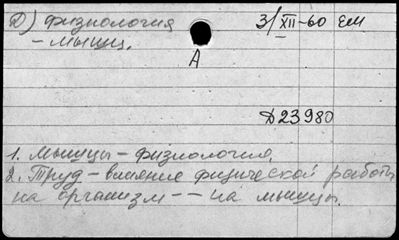 Д) физиология 3/XII-60 ЕМ
- мышц.
А
Д23980
1. Мышцы - физиология.
2. Труд - влияние физической работы
на организм - - на мышцы.